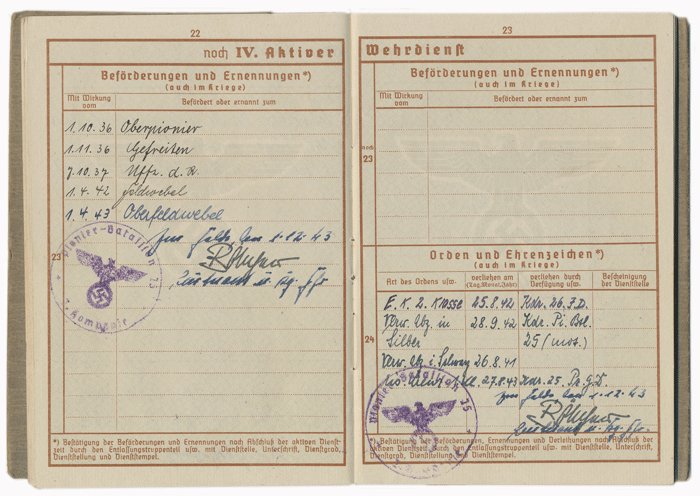 22
noch IV. Aktiver
Beförderungen und Ernennungen*)
(auch im Kriege)
Mit Wirkung vom
Befördert oder ernannt zum
1.10.36 Oberpionier
1.11.36 Gefreiten
7.10.37 Uffz. d. R.
1.4.42 Feldwebel
1.4.43 Oberfeldwebel
Im Felde, den 1.12.43
23
Pionier-Bataillon
Kompanie
*) Bestätigung der Beförderungen und Ernennungen nach Abschluß der aktiven Dienst-
zeit durch den Entlassungstruppenteil usw. mit Dienststelle, Unterschrift, Dienstgrad,
Dienststellung und Dienststempel.
23
Wehrdienst
Beförderungen und Ernennungen*)
(auch im Kriege)
Mit Wirkung vom
Befördert oder ernannt zum
noch
23
Orden und Ehrenzeichen*)
(auch im Kriege)
Art des Ordens usw.
verliehen am
(Tag, Monat, Jahr)
verliehen durch
Verfügung usw.
Bescheinigung
der Dienststelle
E.K. 2. Klasse 25.8.42 Kdr. 26. P.D.
24
Verw. Abz. in 28.9.42 Kdr. Pi. Btl.
Silber 25 (mot.)
Verw. Abz. i. Schwarz 26.8.41
27.8.43 Kdr. 25. Pz. G.D.
Im Felde, den 1.12.43
Pionier-Bataillon
*) Bestätigung der Beförderungen und Ernennungen und Verleihungen nach Abschluß der
aktiven Dienstzeit durch den Entlassungstruppenteil usw. mit Dienststelle, Unterschrift,
Dienstgrad, Dienststellung und Dienststempel.